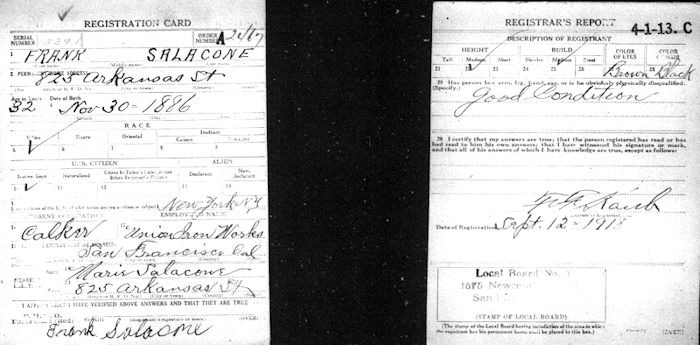 REGISTRATION CARD
SERIAL NUMBER
ORDER NUMBER A
FRANK SALACONE
825 Arkansas St
Age in Years
Date of Birth
32 Nov - 30 - 1886
RACE
White Negro Oriental Indian
U. S. CITIZEN ALIEN
Native Born Naturalized Declarant Non-declarant
New York N.Y.
Calker Union Iron Works
San Francisco Cal
Marie Salacone
825 Arkansas St
I AFFIRM THAT I HAVE VERIFIED ABOVE ANSWERS AND THAT THEY ARE TRUE
P. M. G. O.
Form No. 1 (Red)
(OVER)
Frank Salacone
REGISTRAR'S REPORT
4-1-13. C
DESCRIPTION OF REGISTRANT
HEIGHT BUILD COLOR OF EYES COLOR OF HAIR
Tall Medium Short Slender Medium Stout
Brown Black
29 Has person lost arm, leg, hand, eye, or is he obviously physically disqualified?
(Specify.)
Good Condition
30 I certify that my answers are true; that the person registered has read or has
had read to him his own answers; that I have witnessed his signature or mark,
and that all of his answers of which I have knowledge are true, except as follows:
Date of Registration Sept. 12 - 1918
Local Board No.
1675
San
(STAMP OF LOCAL BOARD)
(The stamp of the Local Board having jurisdiction of the area in which
the registrant has his permanent home shall be placed in this box.)
(OVER)